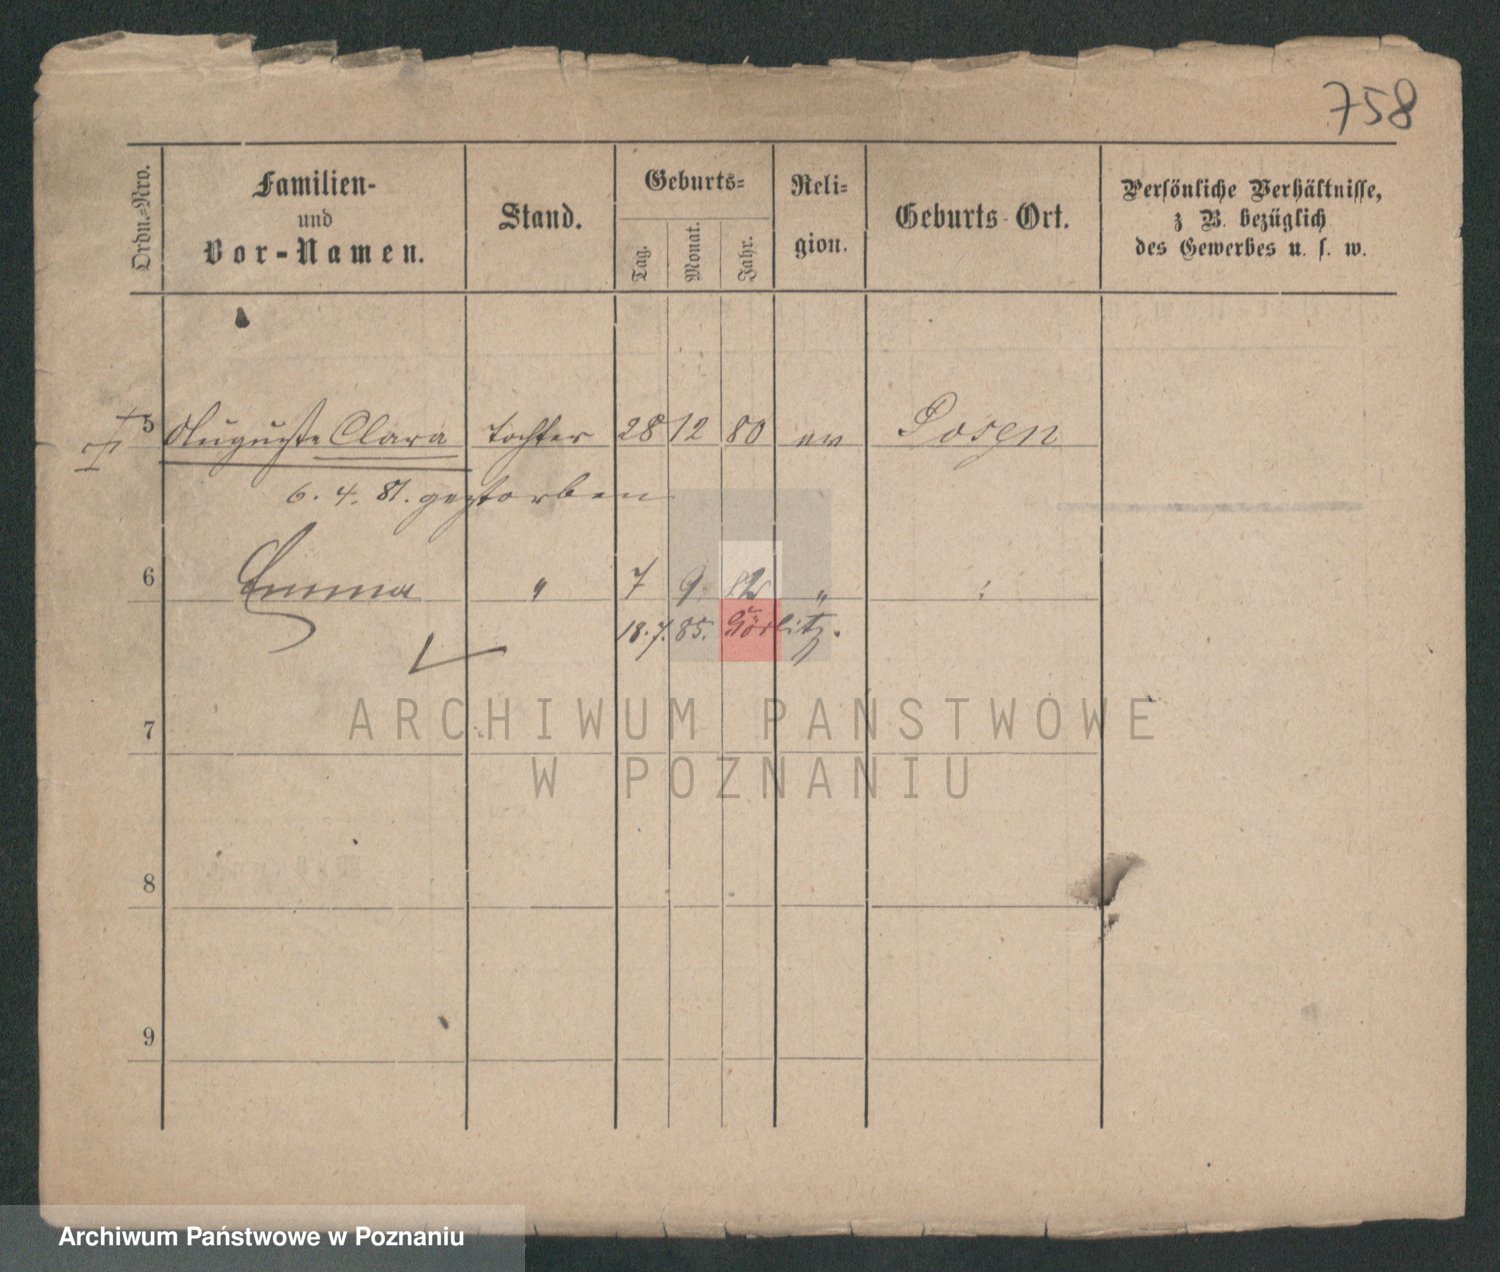 758
Ordn.=Nro.
Familien-
und
Vor-Namen.
Stand.
Geburts=
Tag.
Monat.
Jahr.
Reli=
gion.
Geburts-Ort.
Persönliche Verhältnisse,
z. B. bezüglich
des Gewerbes u. s. w.
5 Auguste Clara Tochter 28 12 80 ev Posen
6. 4. 81. gestorben
6 Emma " 7 9. 82 " :
18. 7. 85. Görlitz.
7
ARCHIWUM PAŃSTWOWE
W POZNANIU
8
9
Archiwum Państwowe w Poznaniu